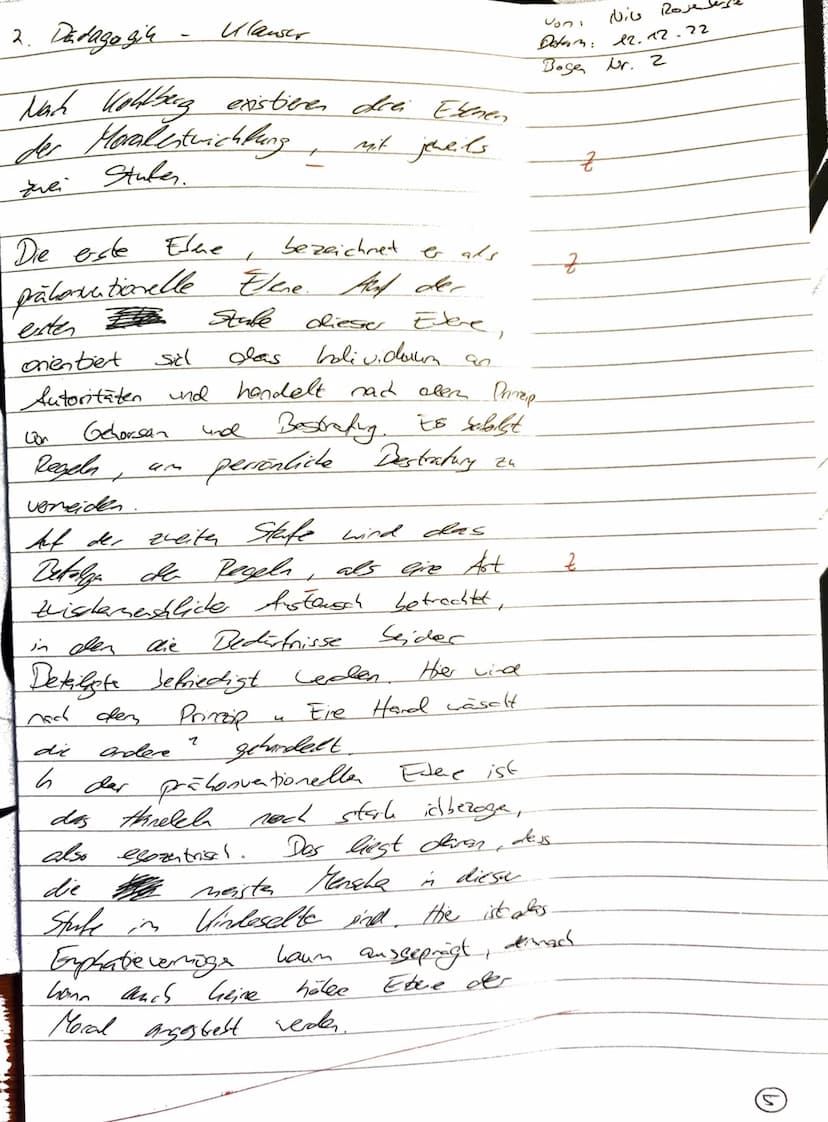 2. Pädagogik - Klausur
Von: Nils
Datum: 12.12.22
Bogen Nr. 2
Nach Kohlberg existieren drei Ebenen
der Moralentwicklung, mit jeweils
Z
zwei Stufen.
Die erste Ebene, bezeichnet er als
Z
präkonventionelle Ebene. Auf der
ersten Stufe dieser Ebene,
orientiert sich das Individuum an
Autoritäten und handelt nach dem Prinzip
von Gehorsam und Bestrafung. Es befolgt
Regeln, um persönliche Bestrafung zu
vermeiden.
Auf der zweiten Stufe wird das
Befolgen der Regeln, als eine Art
Z
zwischenmenschlicher Austausch betrachtet,
in dem die Bedürfnisse beider
Beteiligte befriedigt werden. Hier wird
nach dem Prinzip "Eine Hand wäscht
die andere" gehandelt.
In der präkonventionellen Ebene ist
das Handeln noch stark ichbezogen,
also egozentrisch. Das liegt daran, dass
die meisten Menschen in dieser
Stufe im Kindesalter sind. Hier ist das
Emphatievermögen kaum ausgeprägt, demnach
kann auch keine höhere Ebene der
Moral angestrebt werden.
5